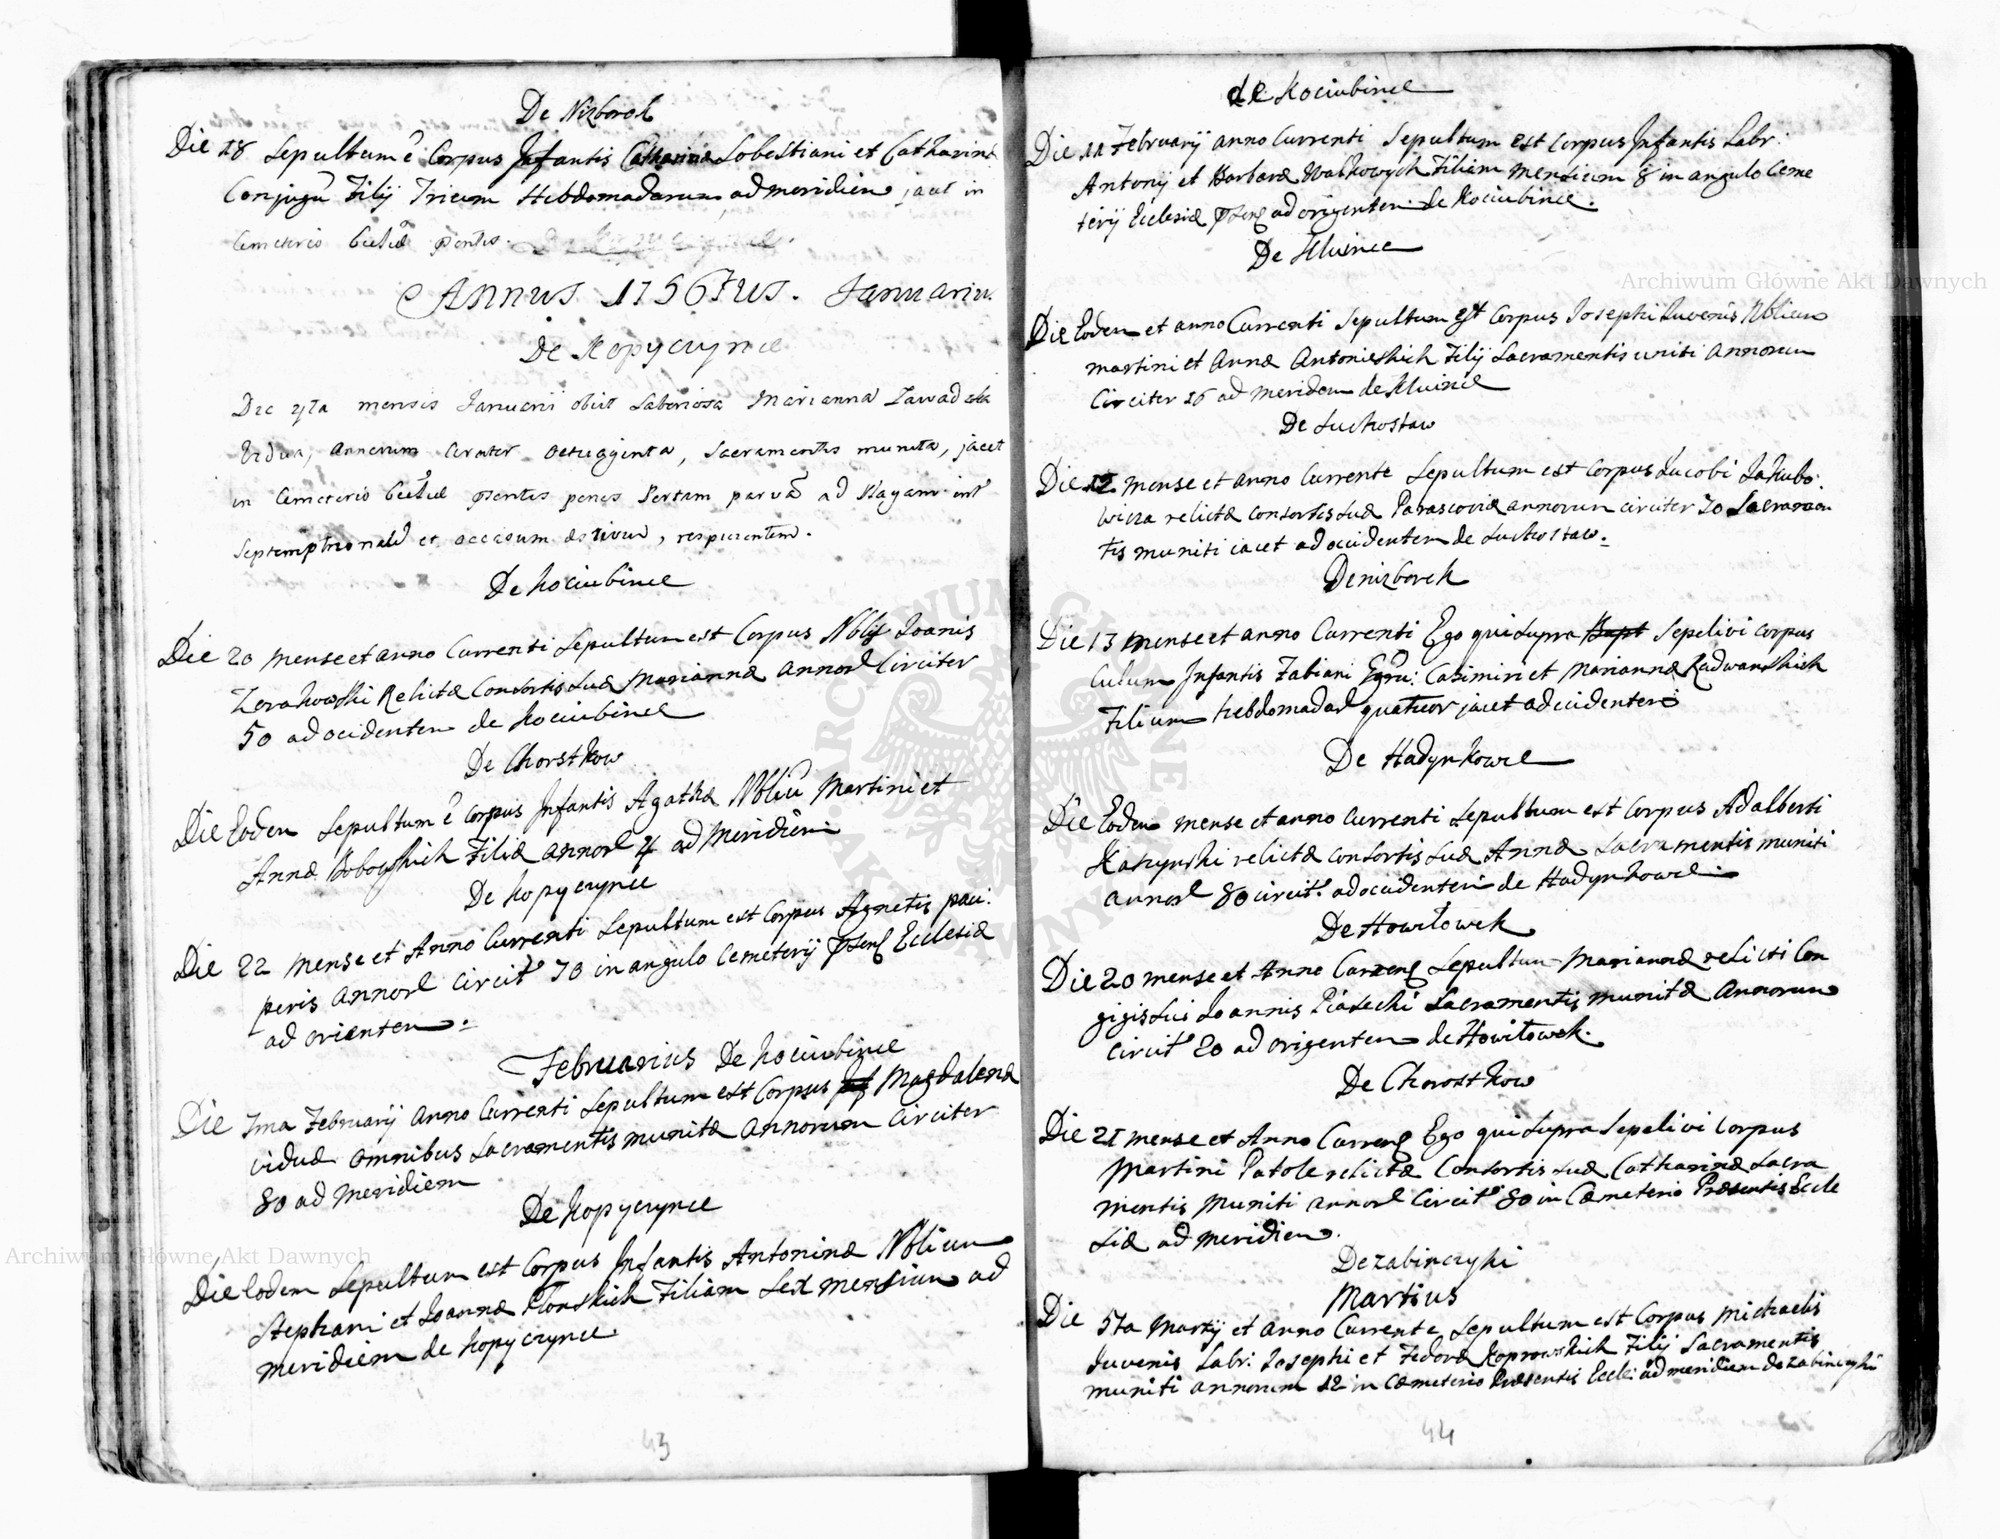 De Nizborek
Die 18 Sepultum ē Corpus Infantis Catharina Sobestiani et Catharinæ
Conjugū Filij Trium Hebdomadarum ad meridiem jacet in
Cemeterio Eccliæ pntis.
ANNUS 1756TUS. Januarius
De Kopyczynce
Die 4ta mensis Januarii obiit Laboriosa Marianna Zawadzka
Vidua, annorum circiter octuaginta, Sacramentis munita, jacet
in Cemeterio Eccliæ pntis penes Portam parvā ad Plagam intr
Septemptrionalē et occasum æstivum, respicientem.
De Kociubince
Die 20 mense et anno Currenti Sepultum est Corpus Nblis Joanis
Zerakowski Relictæ Consortis Suæ Mariannæ annor Circiter
50 ad ocidentem de Kociubince
De Chorstkow
Die Eodem Sepultum ē corpus Infantis Agathæ Nbliū Martini et
Annæ Bobowskich Filiæ annor 4 ad Meridiem
De Kopyczynce
Die 22 mense et Anno Currenti Sepultum est Corpus Agnetis pau:
peris annor circit 70 in angulo Cemeterij psens Ecclesiæ
ad orientem.
Februarius De Kociubince
Die 7ma Februarij anno Currenti Sepultum est Corpus Inf Magdalenæ
viduæ omnibus Sacramentis munitæ annorum circiter
80 ad Meridiem
De Kopyczynce
Die Eodem Sepultum est Corpus Infantis Antoninæ Nblium
Stephani et Joannæ Plonskich Filiam Sex mensium ad
meridiem de Kopyczynce
43
de Kociubince
Die 11 Februarij anno Currenti Sepultum est Corpus Infantis Labr:
Antonij et Barbaræ Walkowych Filiam Mensium 8 in angulo Ceme
terij Ecclesiæ psens ad origentem de Kociubince.
De Kluince
Die Eodem et anno Currenti Sepultum est Corpus Josephi Juvenis Nblium
Martini et Annæ Antonieskich Filij Sacramentis uniti Annorum
Circiter 16 ad meridem de Kluince
De Suchostaw
Die 12 mense et anno Currente Sepultum est Corpus Jacobi Jakubo:
wicza relictæ consortis Suæ Parascoviæ annorum circiter 70 Sacramen
tis muniti iacet ad occidentem de Suchostaw.
De nizborek
Die 13 mense et anno Currenti Ego qui Supra Bapt Sepelivi corpus
Culum Infantis Fabiani Egru: Casimiri et Mariannæ Radwanskich
Filium hebdomadar quatuor jacet ad ccidentem
De Hadynkowce
Die Eodem mense et anno Currenti Sepultum est Corpus Adalberti
Kaczynski relictæ consortis Suæ Annæ Sacramentis muniti
annor 80 circit. ad occidentem de Hadynkowce
De Howilowek
Die 20 mense et Anno Currens Sepultum Mariannæ relicti Con
gigis Sui Joannis Piasecki Sacramentis munitæ Annorum
circit 20 ad origentem de Howilowek.
De Chorostkow
Die 21 mense et Anno Currens Ego qui Supra Sepelivi Corpus
Martini Patole relictæ Consortis Suæ Catharinæ Sacra
mentis Muniti annor Circit 80 in Cæmeterio Præsentis Eccle
siæ ad Meridiem.
De zabinczyki
Martius
Die 5ta Martij et anno Currente Sepultum est Corpus Michaelis
Juvenis Labr: Josephi et Fedoræ Koprowskich Filij Sacramentis
muniti annorum 12 in Cæmeterio Præsentis Eccle: ad meridiem de zabinczyki
44
Archiwum Główne Akt Dawnych
Archiwum Główne Akt Dawnych
ARCHIWUM GŁÓWNE AKT DAWNYCH